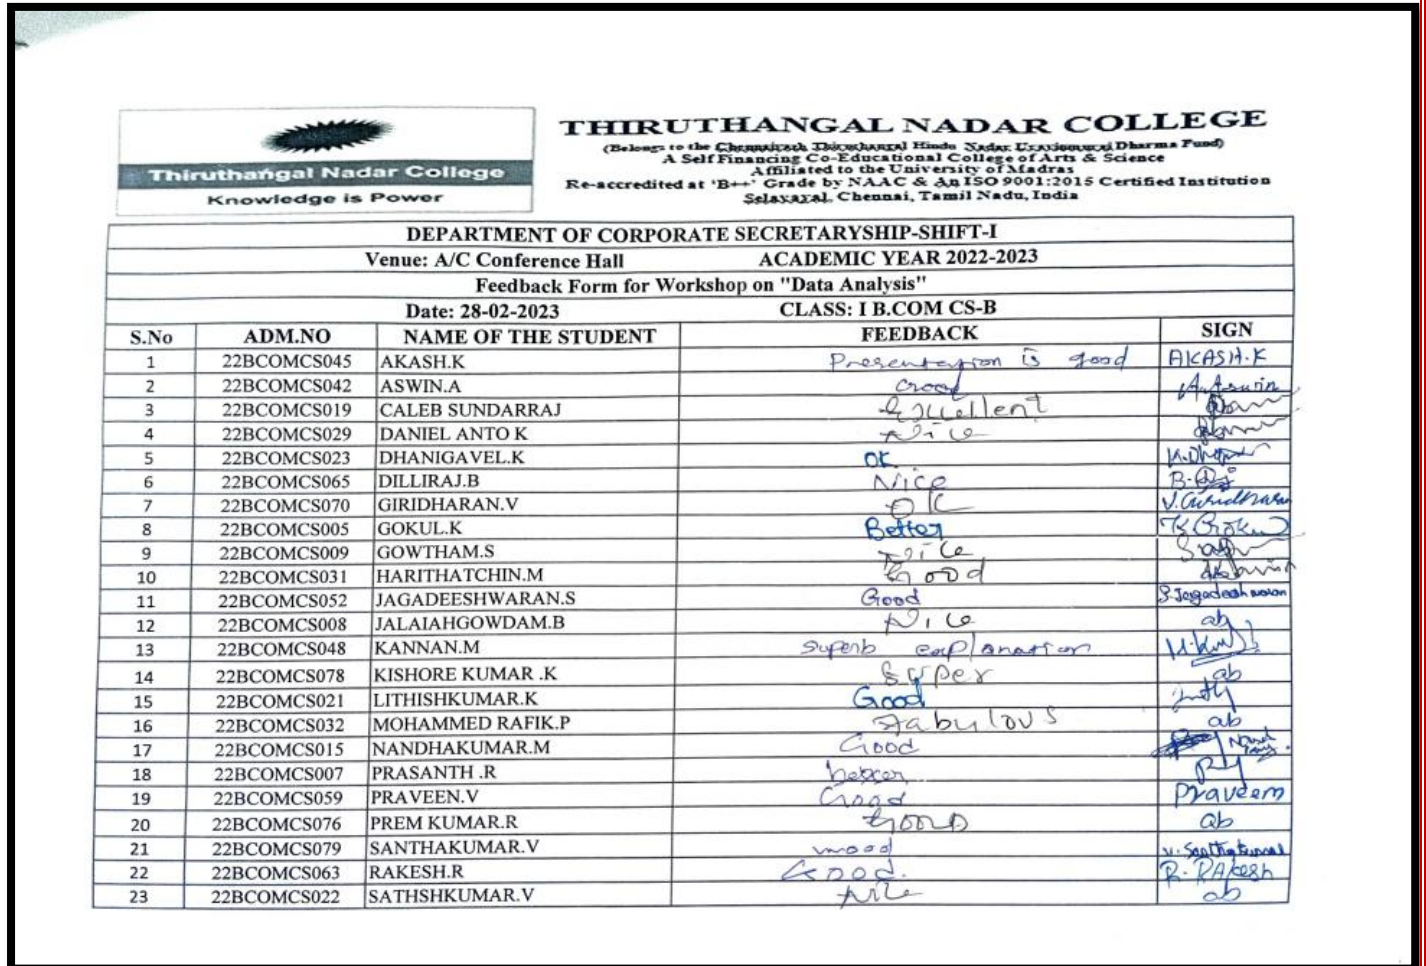 Thiruthangal Nadar College
Knowledge is Power
THIRUTHANGAL NADAR COLLEGE
(Belongs to the Chennaivazh Thiruthangal Hindu Nadar Uravinmurai Dharma Fund)
A Self Financing Co-Educational College of Arts & Science
Affiliated to the University of Madras
Re-accredited at 'B++' Grade by NAAC & An ISO 9001:2015 Certified Institution
Selavayal, Chennai, Tamil Nadu, India
DEPARTMENT OF CORPORATE SECRETARYSHIP-SHIFT-I
Venue: A/C Conference Hall ACADEMIC YEAR 2022-2023
Feedback Form for Workshop on "Data Analysis"
Date: 28-02-2023 CLASS: I B.COM CS-B
S.No ADM.NO NAME OF THE STUDENT FEEDBACK SIGN
1 22BCOMCS045 AKASH.K Presentation is good AKASH.K
2 22BCOMCS042 ASWIN.A Good A.Aswin
3 22BCOMCS019 CALEB SUNDARRAJ Excellent
4 22BCOMCS029 DANIEL ANTO K Nice
5 22BCOMCS023 DHANIGAVEL.K OK
6 22BCOMCS065 DILLIRAJ.B Nice
7 22BCOMCS070 GIRIDHARAN.V OK V.Giridharan
8 22BCOMCS005 GOKUL.K Better K.Gokul
9 22BCOMCS009 GOWTHAM.S Nice
10 22BCOMCS031 HARITHATCHIN.M Good
11 22BCOMCS052 JAGADEESHWARAN.S Good S.Jagadeeshwaran
12 22BCOMCS008 JALAIAHGOWDAM.B Nice ab
13 22BCOMCS048 KANNAN.M superb explanation
14 22BCOMCS078 KISHORE KUMAR .K Super ab
15 22BCOMCS021 LITHISHKUMAR.K Good
16 22BCOMCS032 MOHAMMED RAFIK.P Fabulous ab
17 22BCOMCS015 NANDHAKUMAR.M Good
18 22BCOMCS007 PRASANTH .R better
19 22BCOMCS059 PRAVEEN.V Good Praveem
20 22BCOMCS076 PREM KUMAR.R Good ab
21 22BCOMCS079 SANTHAKUMAR.V V.Santhakumar
22 22BCOMCS063 RAKESH.R Good. R.RAkesh
23 22BCOMCS022 SATHSHKUMAR.V Nice ab